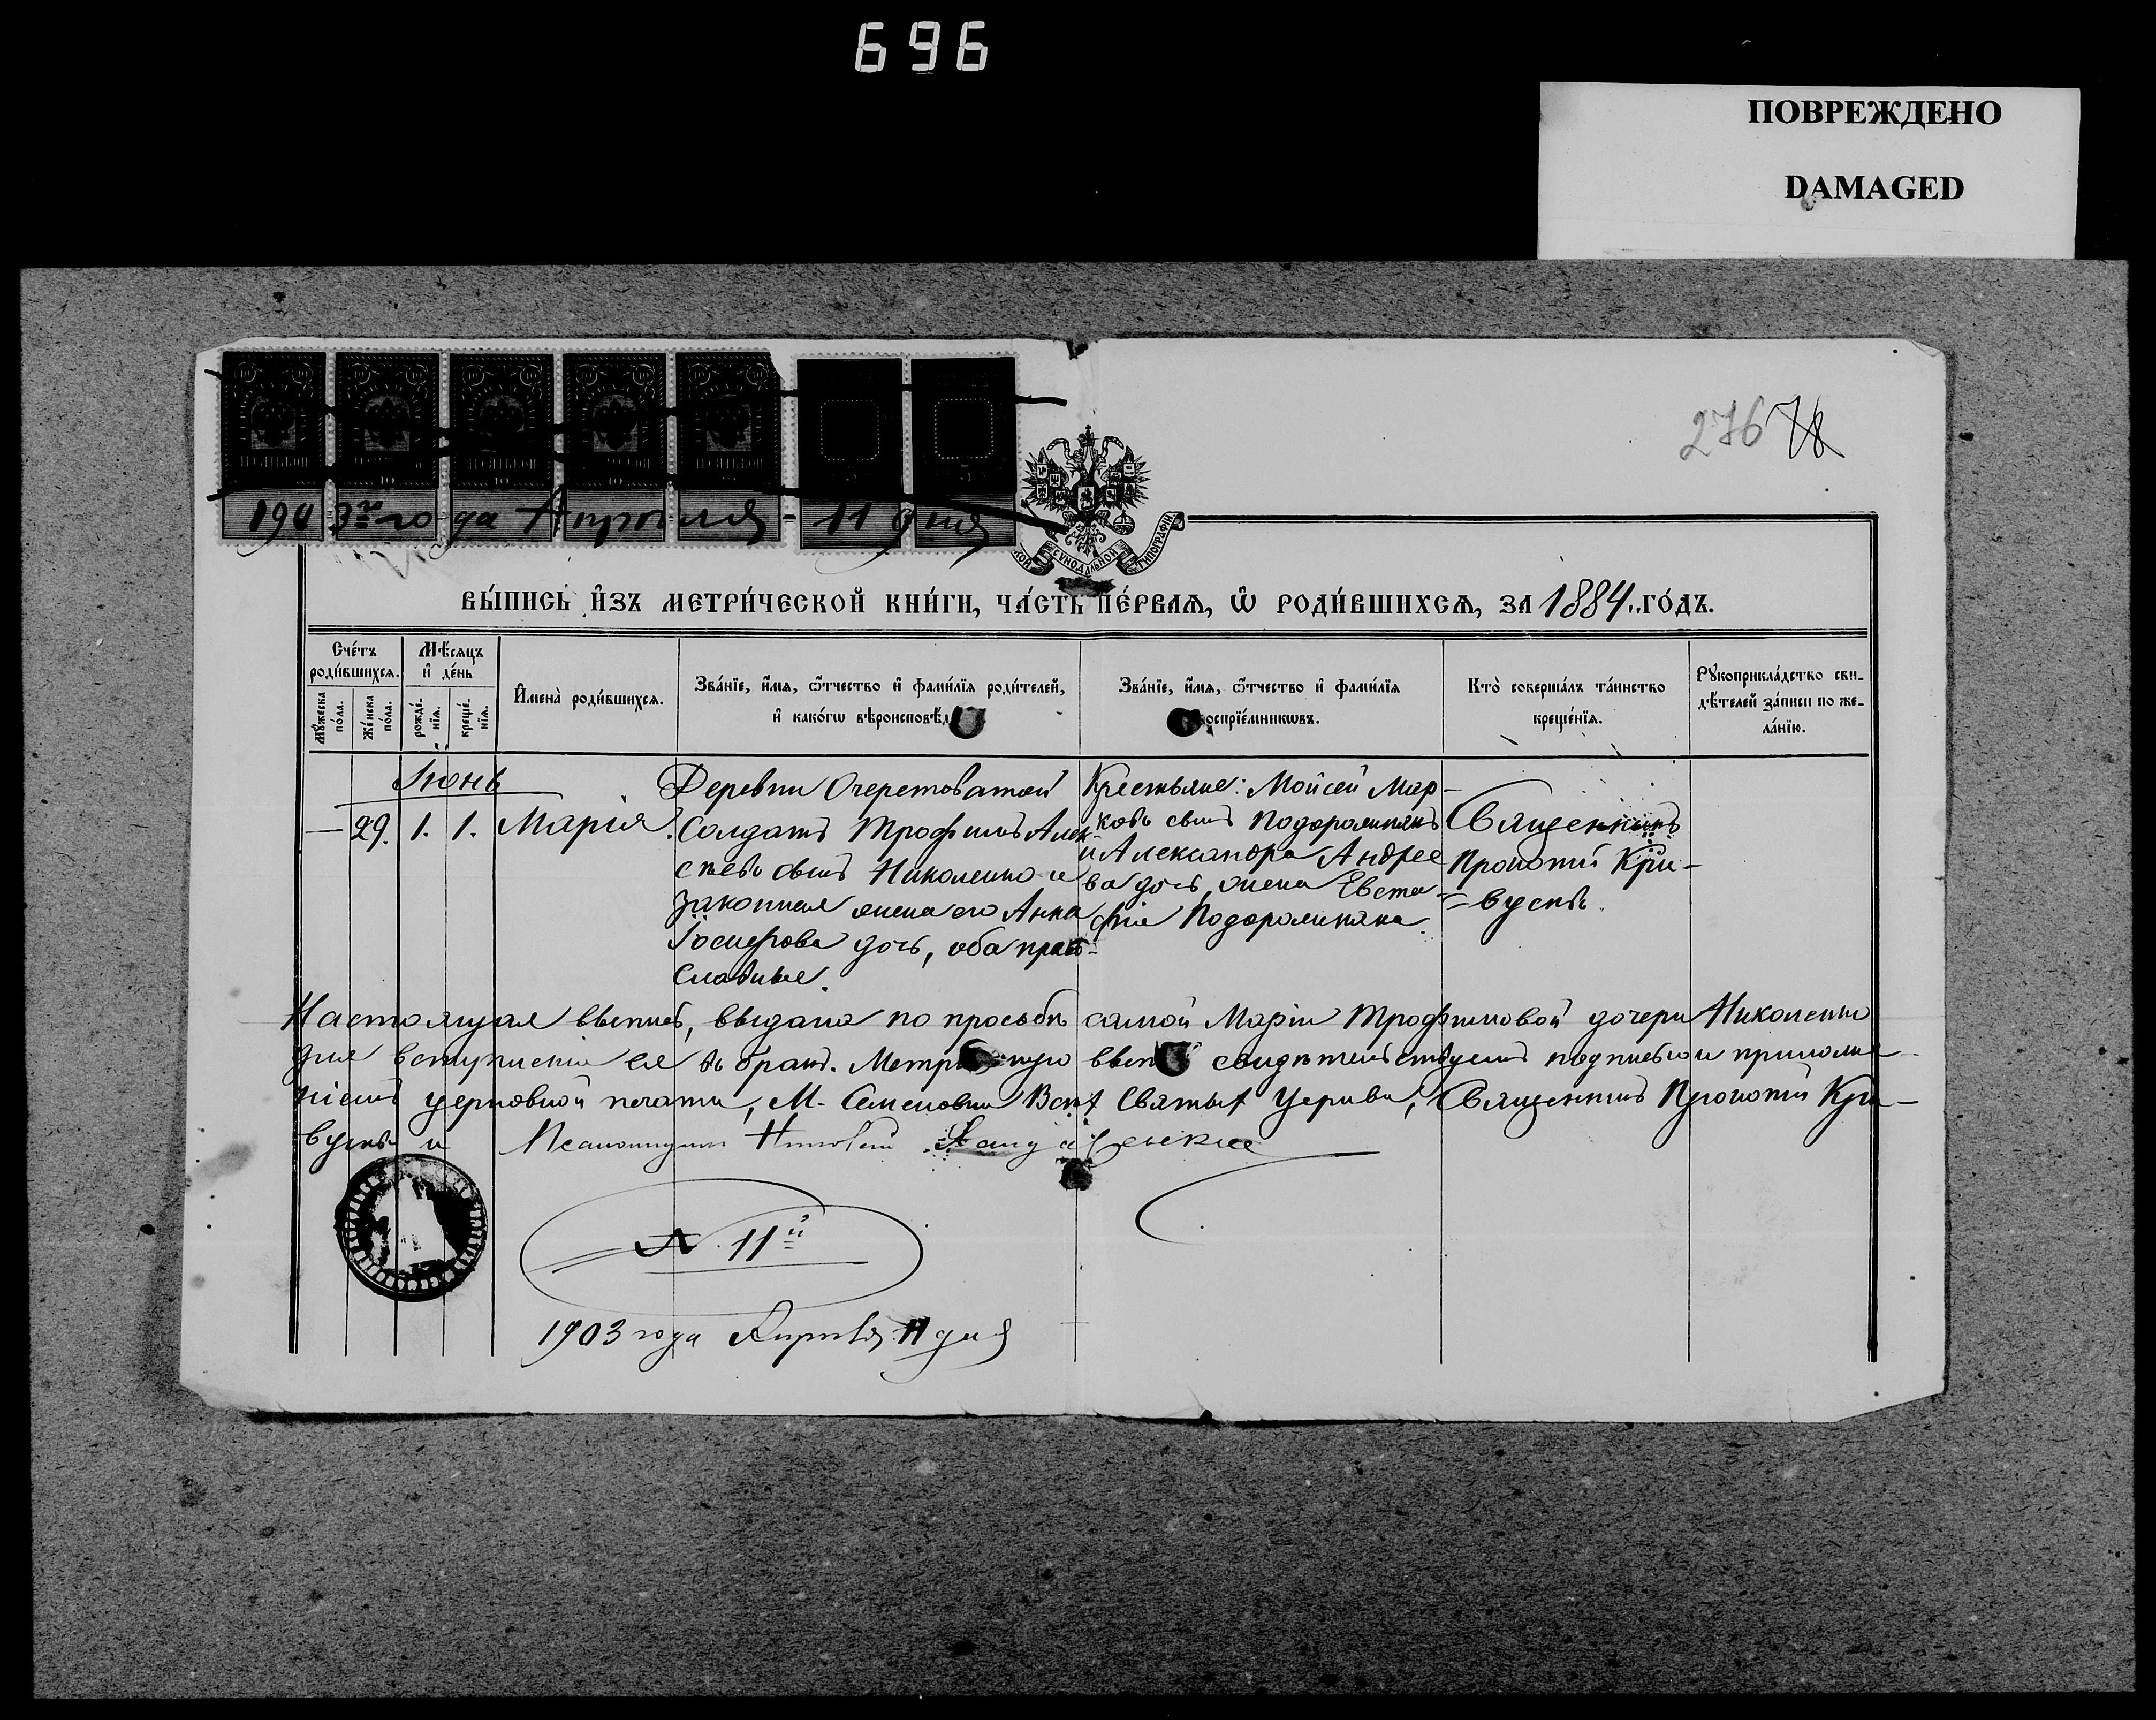 696
ПОВРЕЖДЕНО
DAMAGED
276 78
1903го года Апрѣля 11 дня
СѴНОДАЛЬНОЙ ТИПОГРАФІИ
ВЫ́ПИСЬ И҆ЗЪ МЕТРИ́ЧЕСКОЙ КНИ́ГИ, ЧА́СТЬ ПЕ́РВАѦ, Ѽ РОДИ́ВШИХСѦ, ЗА 1884 ГО́ДЪ.
Сче́тъ роди́вшихсѧ.
Мꙋ́жеска по́ла.
Же́нска по́ла.
Мѣ́сѧцъ и҆ де́нь
рожде́нїѧ.
креще́нїѧ.
И҆мена̀ роди́вшихсѧ.
Зва́нїе, и҆́мѧ, ѻ҆́тчество и҆ фами́лїѧ роди́телей,
и҆ како́гѡ вѣроисповѣд
Зва́нїе, и҆́мѧ, ѻ҆́тчество и҆ фами́лїѧ
оспрїе́мникѡвъ.
Кто̀ соверша́лъ та́инство
креще́нїѧ.
Рꙋкоприкла́дство сви-
дѣ́телей за́писи по же-
ла́нїю.
Іюнь
— 29. 1. 1. Марія.
Деревни Очеретоватой
Солдатъ Трофимъ Алек-
сѣевъ сынъ Николенко и
законная жена его Анна
Іосифова дочь, оба право-
славные.
Крестьяне: Мойсей Мар-
ковъ сынъ Подоролинякъ
и Александра Андрее
ва дочь, жена Евста-
фія Подоролиняка.
Священникъ
Прокопій Кри-
вускъ.
Настоящая выпись, выдана по просьбѣ самой Маріи Трофимовой дочери Николенко
для вступленія ея въ бракъ. Метри ную вып свидѣтельствуемъ подписью и приложе-
ніемъ церковной печати, М. Семеновки Всѣх Святых Церкви, Священникъ Прокопій Кри-
вускъ и Псаломщикъ
N. 11й
1903 года Апрѣля 11 дня